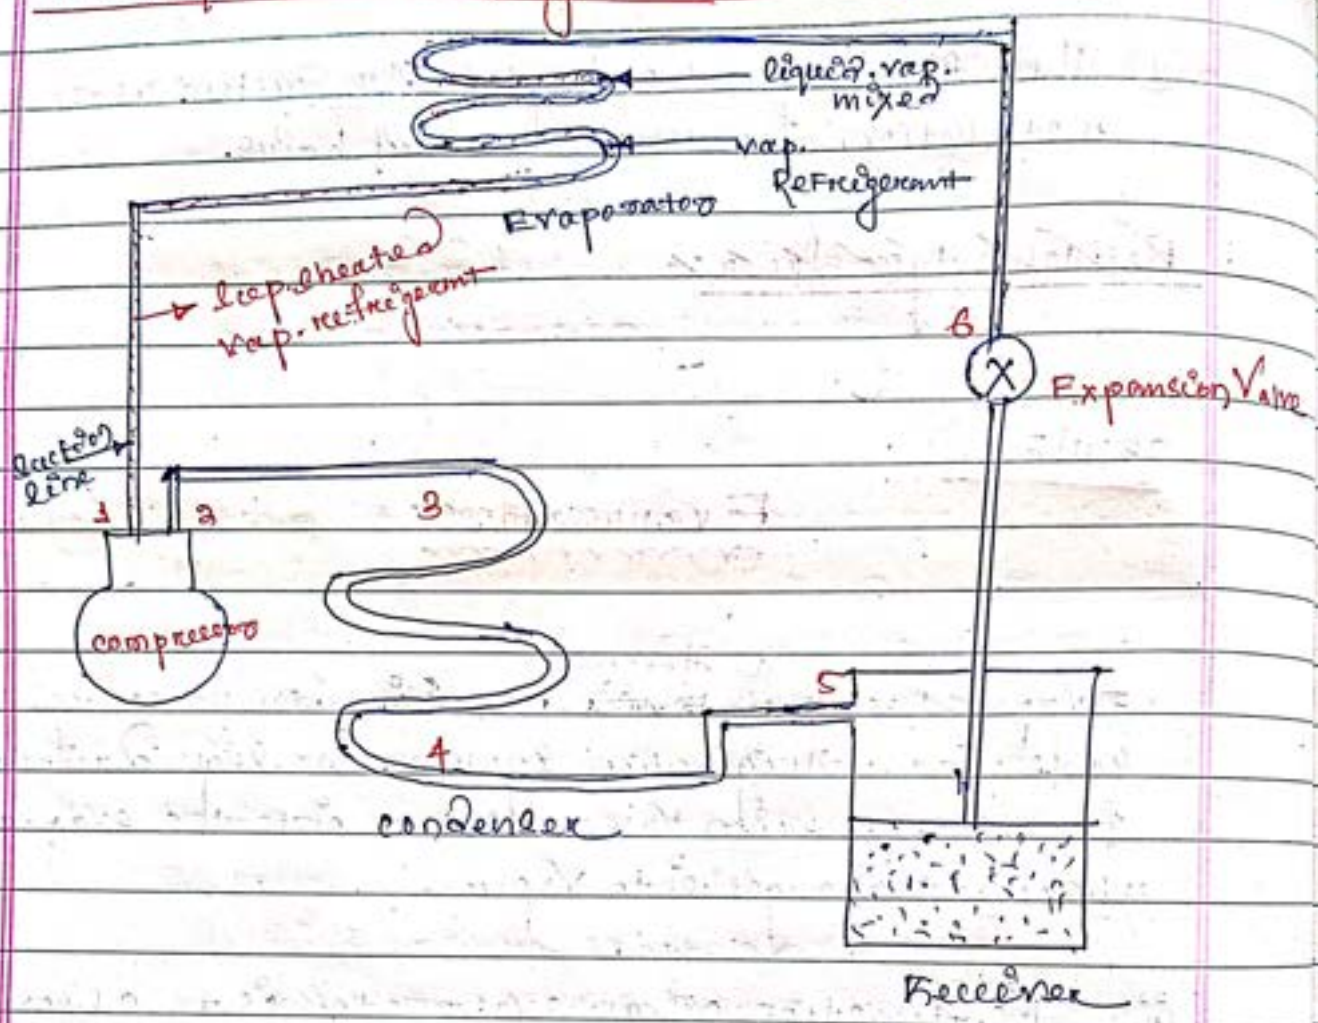 liquid. vap.
mixed
vap.
Refrigerant
Evaporator
sup. heated
vap. refrigerant
6
Expansion Valve
suction
line
1
2
3
compressor
5
4
condenser
Receiver